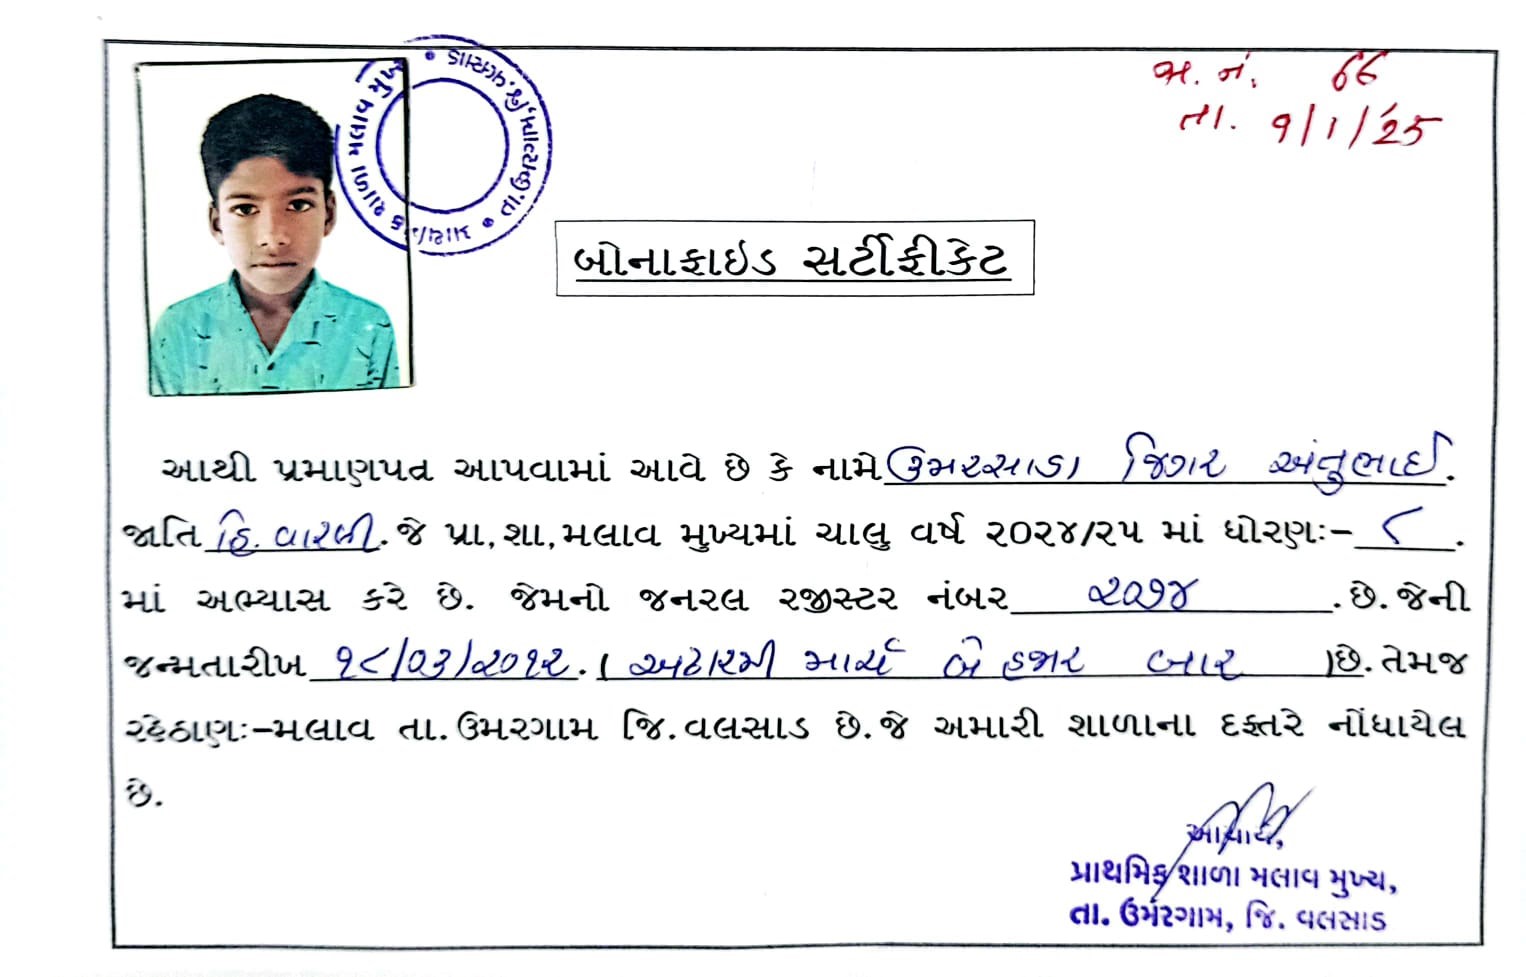 જા. નં. 66
તા. 9/1/25
બોનાફાઇડ સર્ટીફીકેટ
આથી પ્રમાણપત્ર આપવામાં આવે છે કે નામે ઉમરસાડા જિગર અંતુભાઈ.
જાતિ હિ. વારલી. જે પ્રા,શા,મલાવ મુખ્યમાં ચાલુ વર્ષ ૨૦૨૪/૨૫ માં ધોરણઃ- ૮ .
માં અભ્યાસ કરે છે. જેમનો જનરલ રજીસ્ટર નંબર ૨૦૭૪ .છે.જેની
જન્મતારીખ ૧૮/૦૩/૨૦૧૨.( અઢારમી માર્ચ બે હજાર બાર )છે.તેમજ
રહેઠાણઃ-મલાવ તા.ઉમરગામ જિ.વલસાડ છે.જે અમારી શાળાના દફતરે નોંધાયેલ
છે.
આચાર્ય,
પ્રાથમિક શાળા મલાવ મુખ્ય,
તા. ઉમરગામ, જિ. વલસાડ